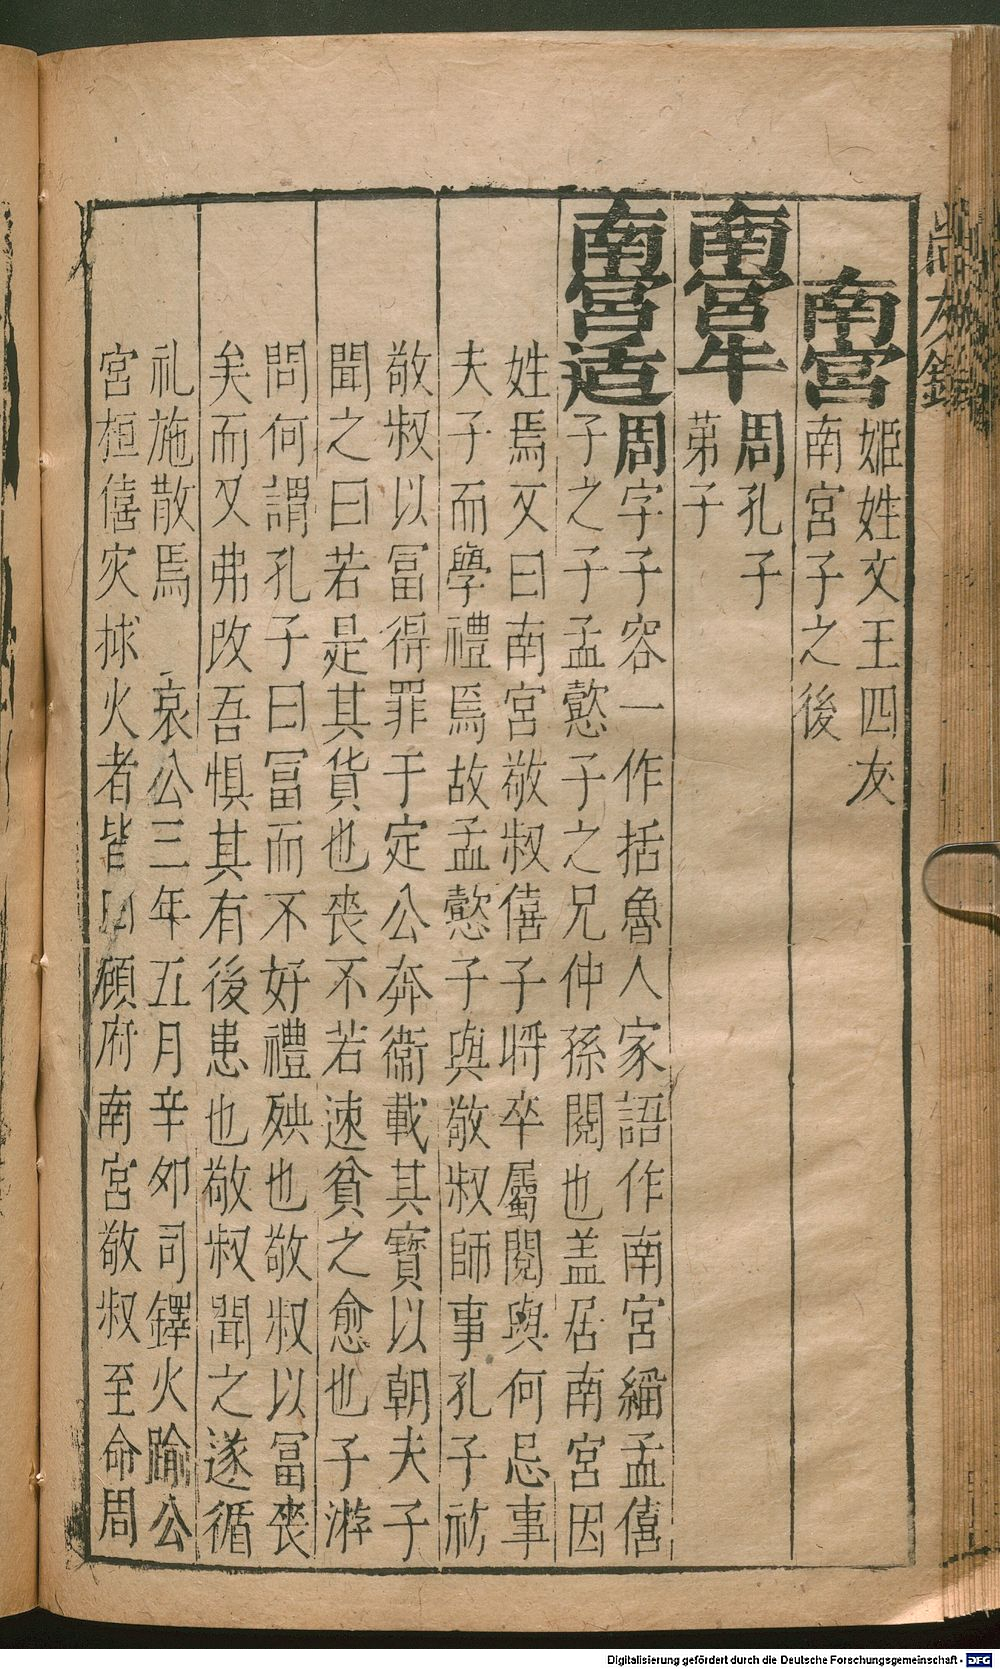 南宮
姬姓文王四友
南宮子之後
南宮牟
周孔子
弟子
南宮适
周字子容一作括魯人家語作南宮縚孟僖
子之子孟懿子之兄仲孫閱也盖居南宮因
姓焉又曰南宮敬叔僖子將卒屬閱與何忌事
夫子而學禮焉故孟懿子與敬叔師事孔子初
敬叔以冨得罪于定公奔衞載其寶以朝夫子
聞之曰若是其貨也喪不若速貧之愈也子游
問何謂孔子曰冨而不好禮殃也敬叔以冨喪
矣而又弗改吾惧其有後患也敬叔聞之遂循
礼施散焉 哀公三年五月辛夘司鐸火踰公
宮桓僖灾捄火者皆曰顧府南宮敬叔至命周
Digitalisierung gefördert durch die Deutsche Forschungsgemeinschaft - DFG